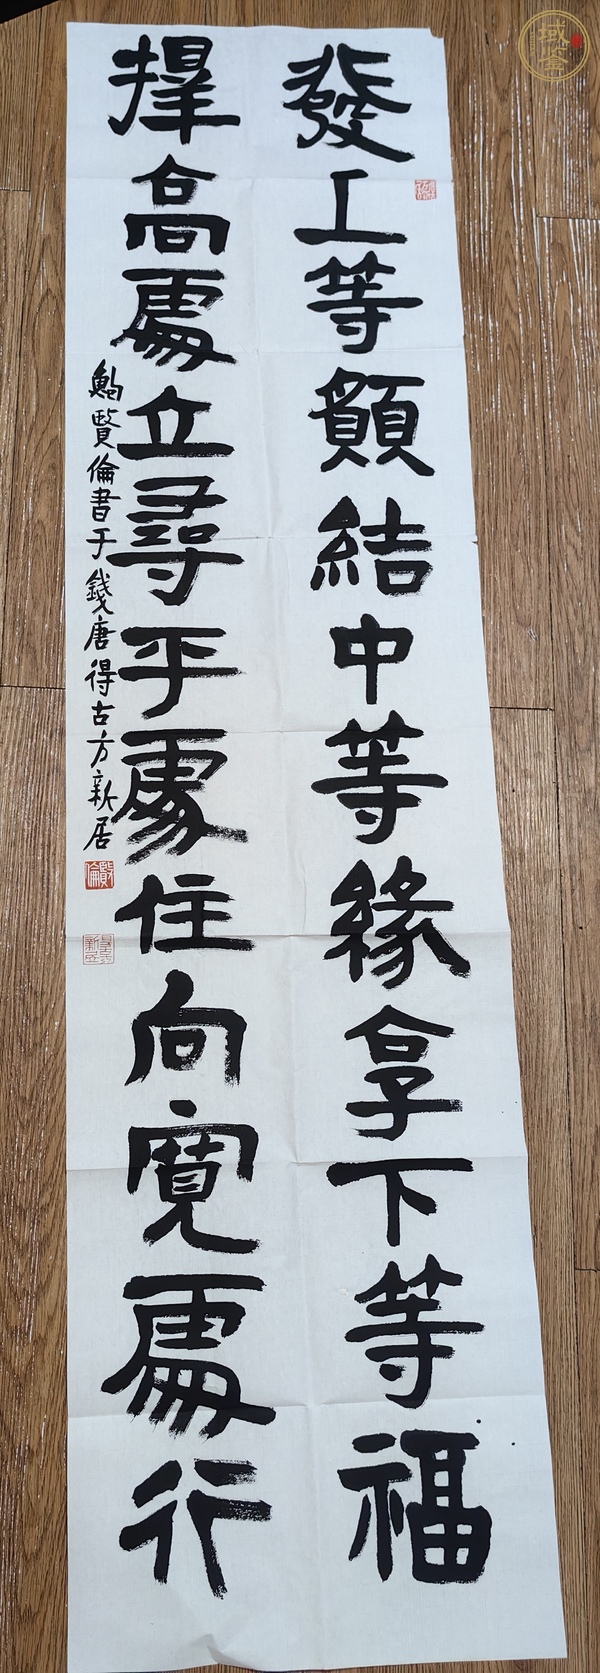 發上等願結中等緣享下等福
擇高處立尋平處住向寬處行
鮑賢倫書于錢唐得古方新居
賢倫
域鉴